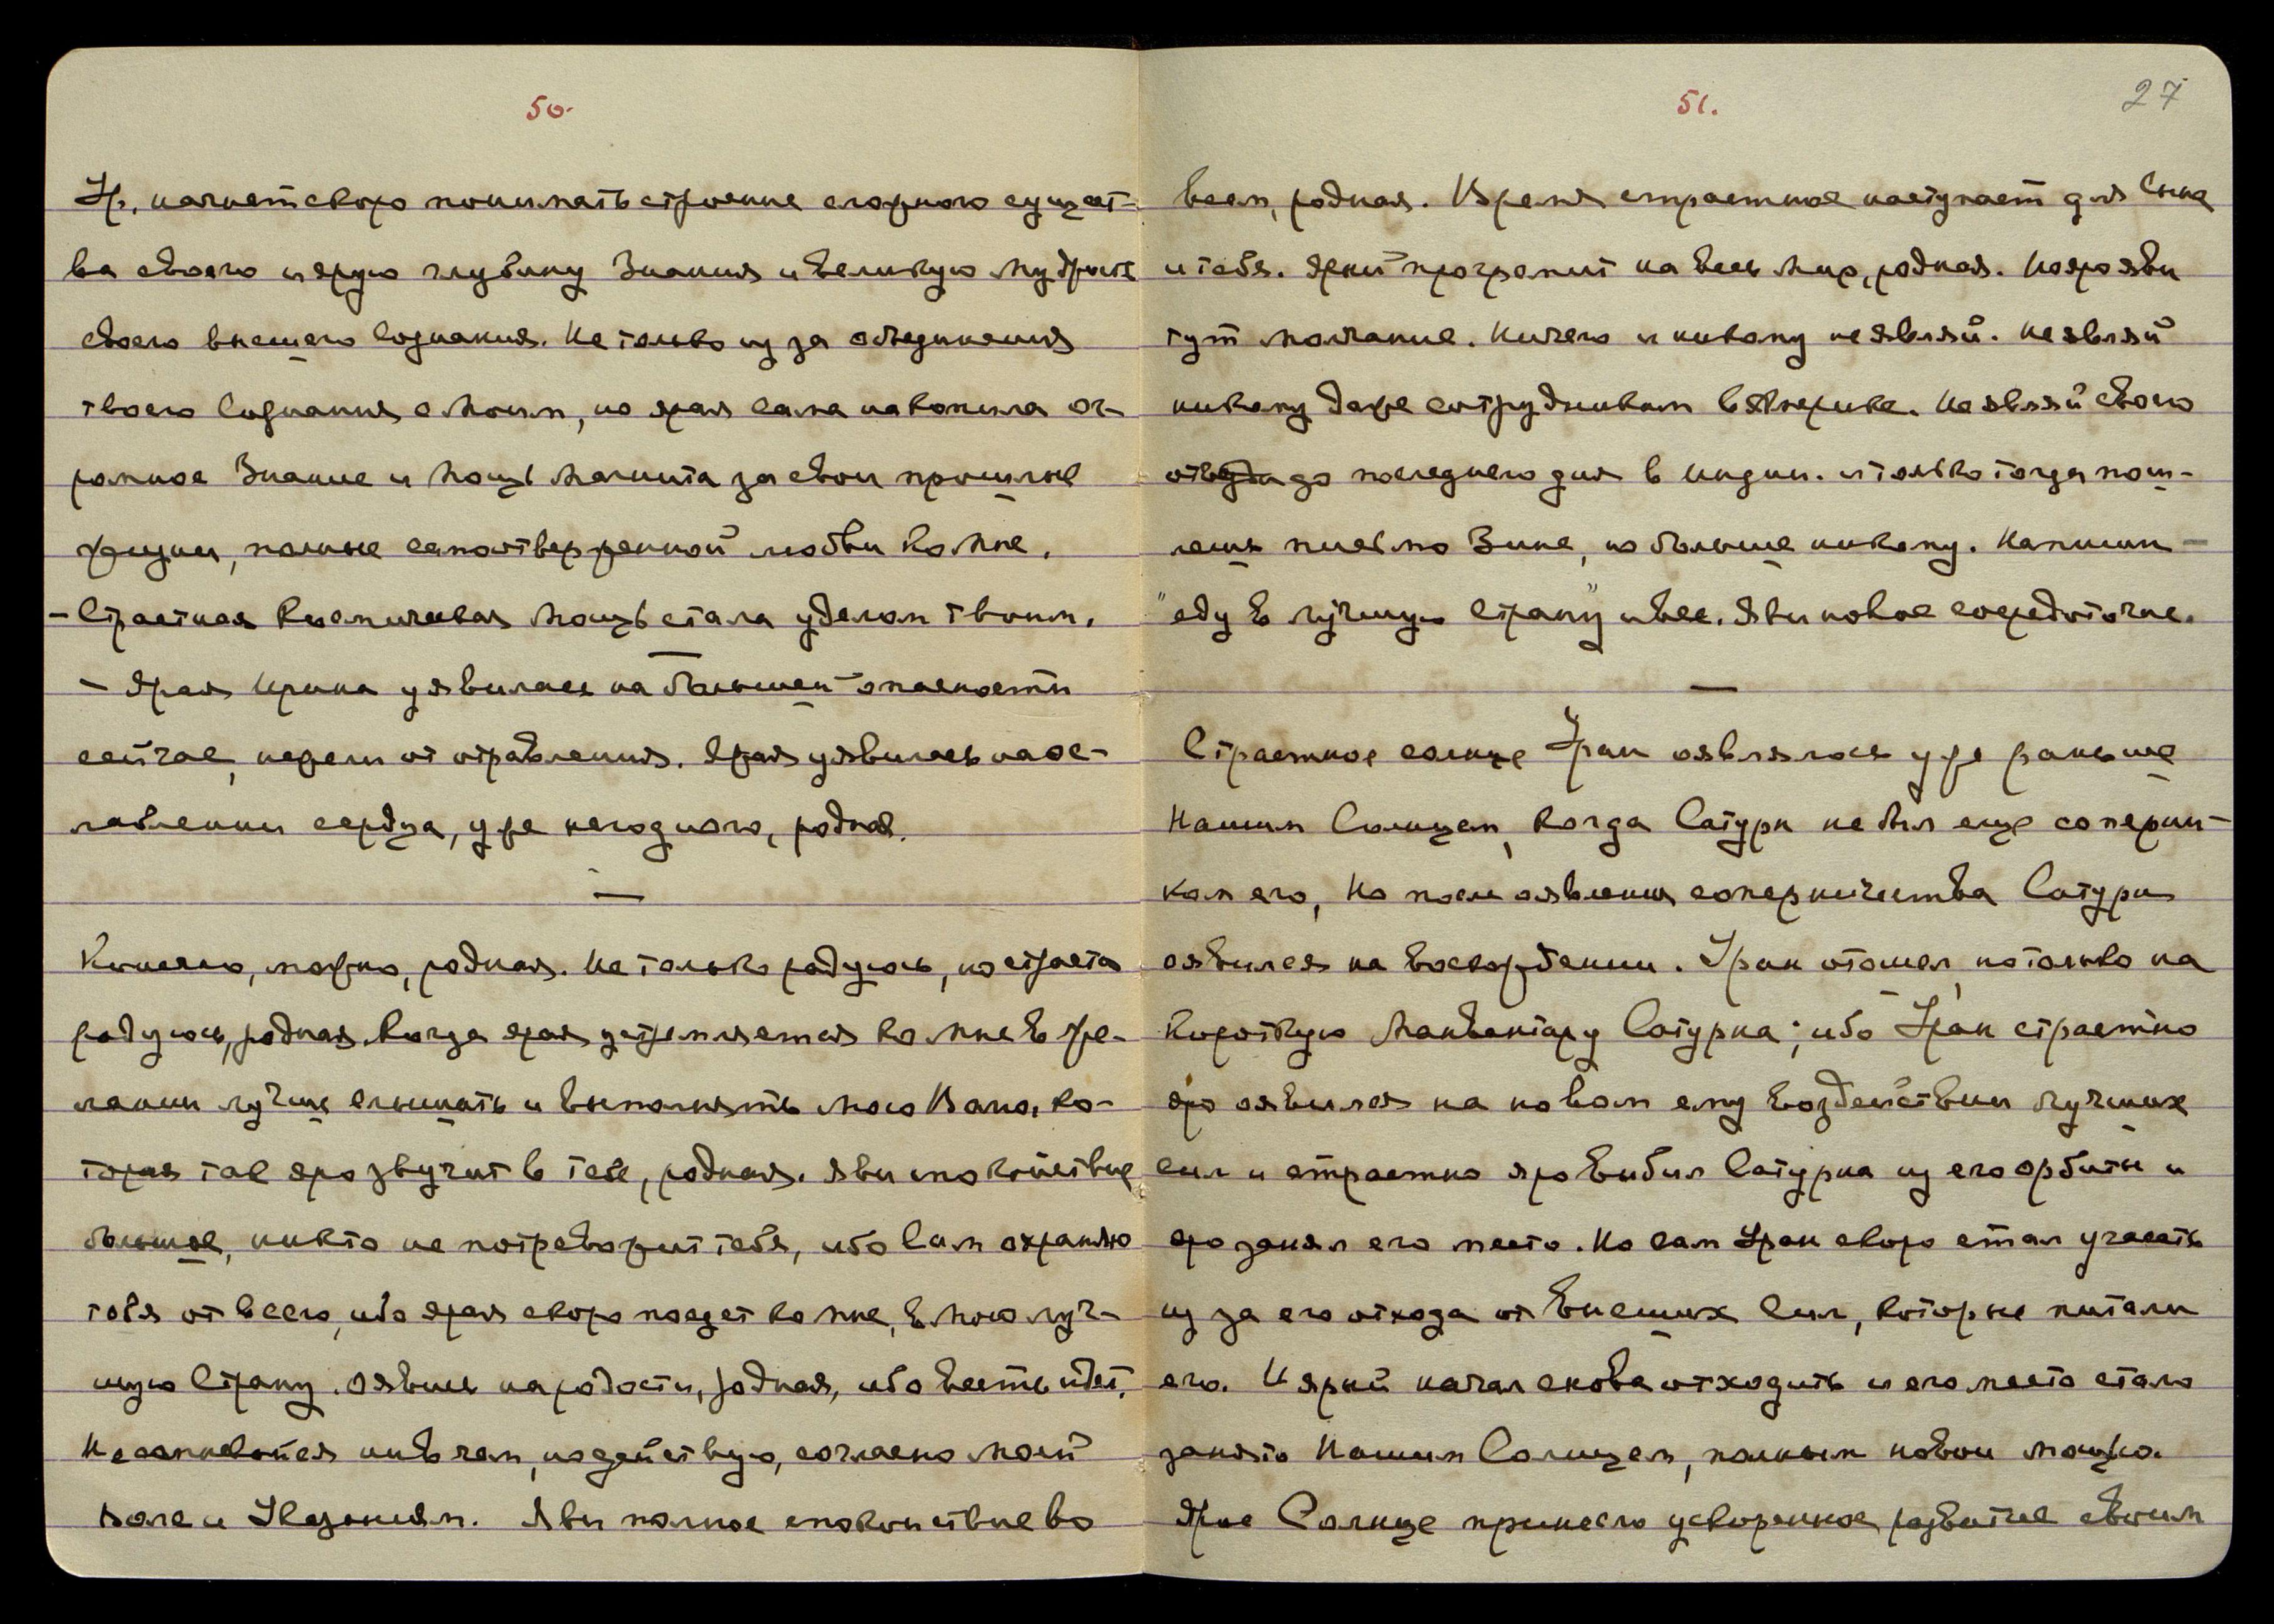 50.
Ур. начнет скоро понимать строение сложного сущест-
ва своего и ярую глубину Знания и великую мудрость
своего высшего сознания. Не только из за объединения
твоего Сознания с Моим, но ярая сама накопила ог-
ромное Знание и Мощь Магнита за свои прошлые
жизни, полные самоотверженной любви ко Мне.
- Страстная Космическая Мощь стала уделом твоим.
- Ярая Ирина уявилась на большей опасности
сейчас, нежели от отравления. Ярая уявилась на ос-
лаблении сердца, уже негодного, родная.
—
Конечно, можно, родная. Не только радуюсь, но страстно
радуюсь, родная, когда ярая устремляется ко Мне в же-
лании лучше слышать и выполнять Мою Волю, ко-
торая так яро звучит в тебе, родная. Яви спокойствие
большое, никто не потревожит тебя, ибо Сам охраняю
тебя от всего, ибо ярая скоро поедет ко Мне, в Мою луч-
шую Страну. Оявись на радости, родная, ибо весть идет.
Не сомневайся ни в чем, но действую, согласно Моей
Воле и Указаниям. Яви полное спокойствие во
51.
27
всем, родная. Время страстное наступает для Сына
и тебя. Яркий прогремит на весь Мир, родная. Но яро яви
тут молчание. Ничего и никому не являй. Не являй
никому даже сотрудникам в Америке. Не являй своего
до последнего дня в Индии. И только тогда пош-
лешь письмо Зине, но больше никому. Напиши -
"еду в лучшую Страну" и все. Яви новое сосредоточие.
—
Страстное солнце Уран оявлялось уже раньше
Нашим Солнцем, когда Сатурн не был еще соперни-
ком его, Но после оявления соперничества Сатурн
оявился на восхождении. Уран отошел, но только на
короткую Манвантару Сатурна; ибо Уран страстно
яро оявился на новом ему воздействии лучших
сил и страстно яро выбил Сатурна из его орбиты и
яро занял его место. Но сам Уран скоро стал угасать
из за его отхода от Высших Сил, которые питали
его. И яркий начал снова отходить и его место стало
занято Нашим Солнцем, полным новой мощью.
Ярое Солнце принесло ускоренное развитие своим